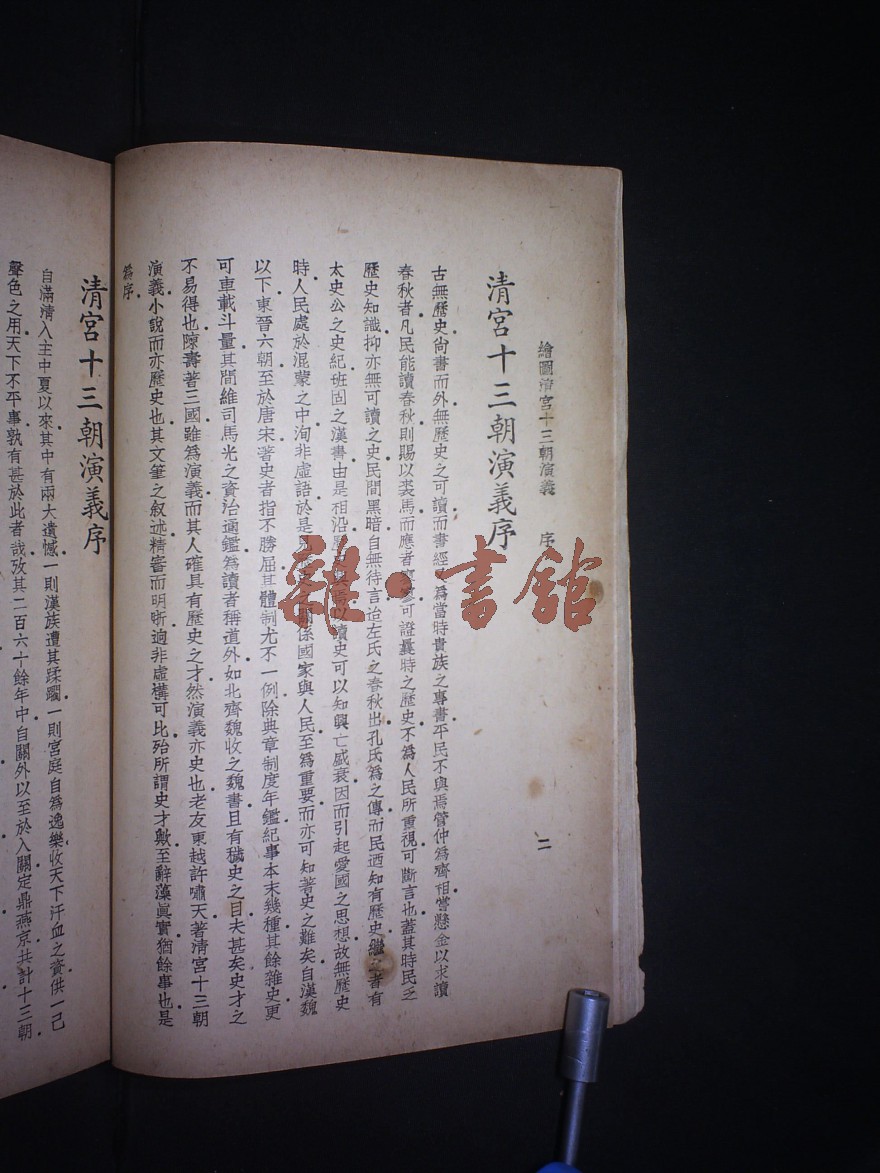 繪圖清宮十三朝演義　序　二
清宮十三朝演義序
古無歷史尚書而外無歷史之可讀而書經為當時貴族之專書平民不與焉管仲為齊相嘗懸金以求讀
春秋者凡民能讀春秋則賜以裘馬而應者可證曩時之歷史不為人民所重視可斷言也蓋其時民乏
歷史知識抑亦無可讀之史民間黑暗自無待言迨左氏之春秋出孔氏為之傳而民迺知有歷史繼之者有
太史公之史紀班固之漢書由是相沿讀史可以知興亡盛衰因而引起愛國之思想故無歷史
時人民處於混蒙之中洵非虛語於是係國家與人民至為重要而亦可知著史之難矣自漢魏
以下東晉六朝至於唐宋著史者指不勝屈其體制尤不一例除典章制度年鑑紀事本末幾種其餘雜史更
可車載斗量其間維司馬光之資治通鑑為讀者稱道外如北齊魏收之魏書且有穢史之目夫甚矣史才之
不易得也陳壽著三國雖為演義而其人確具有歷史之才然演義亦史也老友東越許嘯天著清宮十三朝
演義小說而亦歷史也其文筆之叙述精審而明晰逈非虛構可比殆所謂史才歟至辭藻眞實猶餘事也是
為序
清宮十三朝演義序
自滿清入主中夏以來其中有兩大遺憾一則漢族遭其蹂躝一則宮庭自為逸樂收天下汗血之資供一己
聲色之用天下不平事孰有甚於此者哉攷其二百六十餘年中自關外以至於入關定鼎燕京共計十三朝
雜·書館